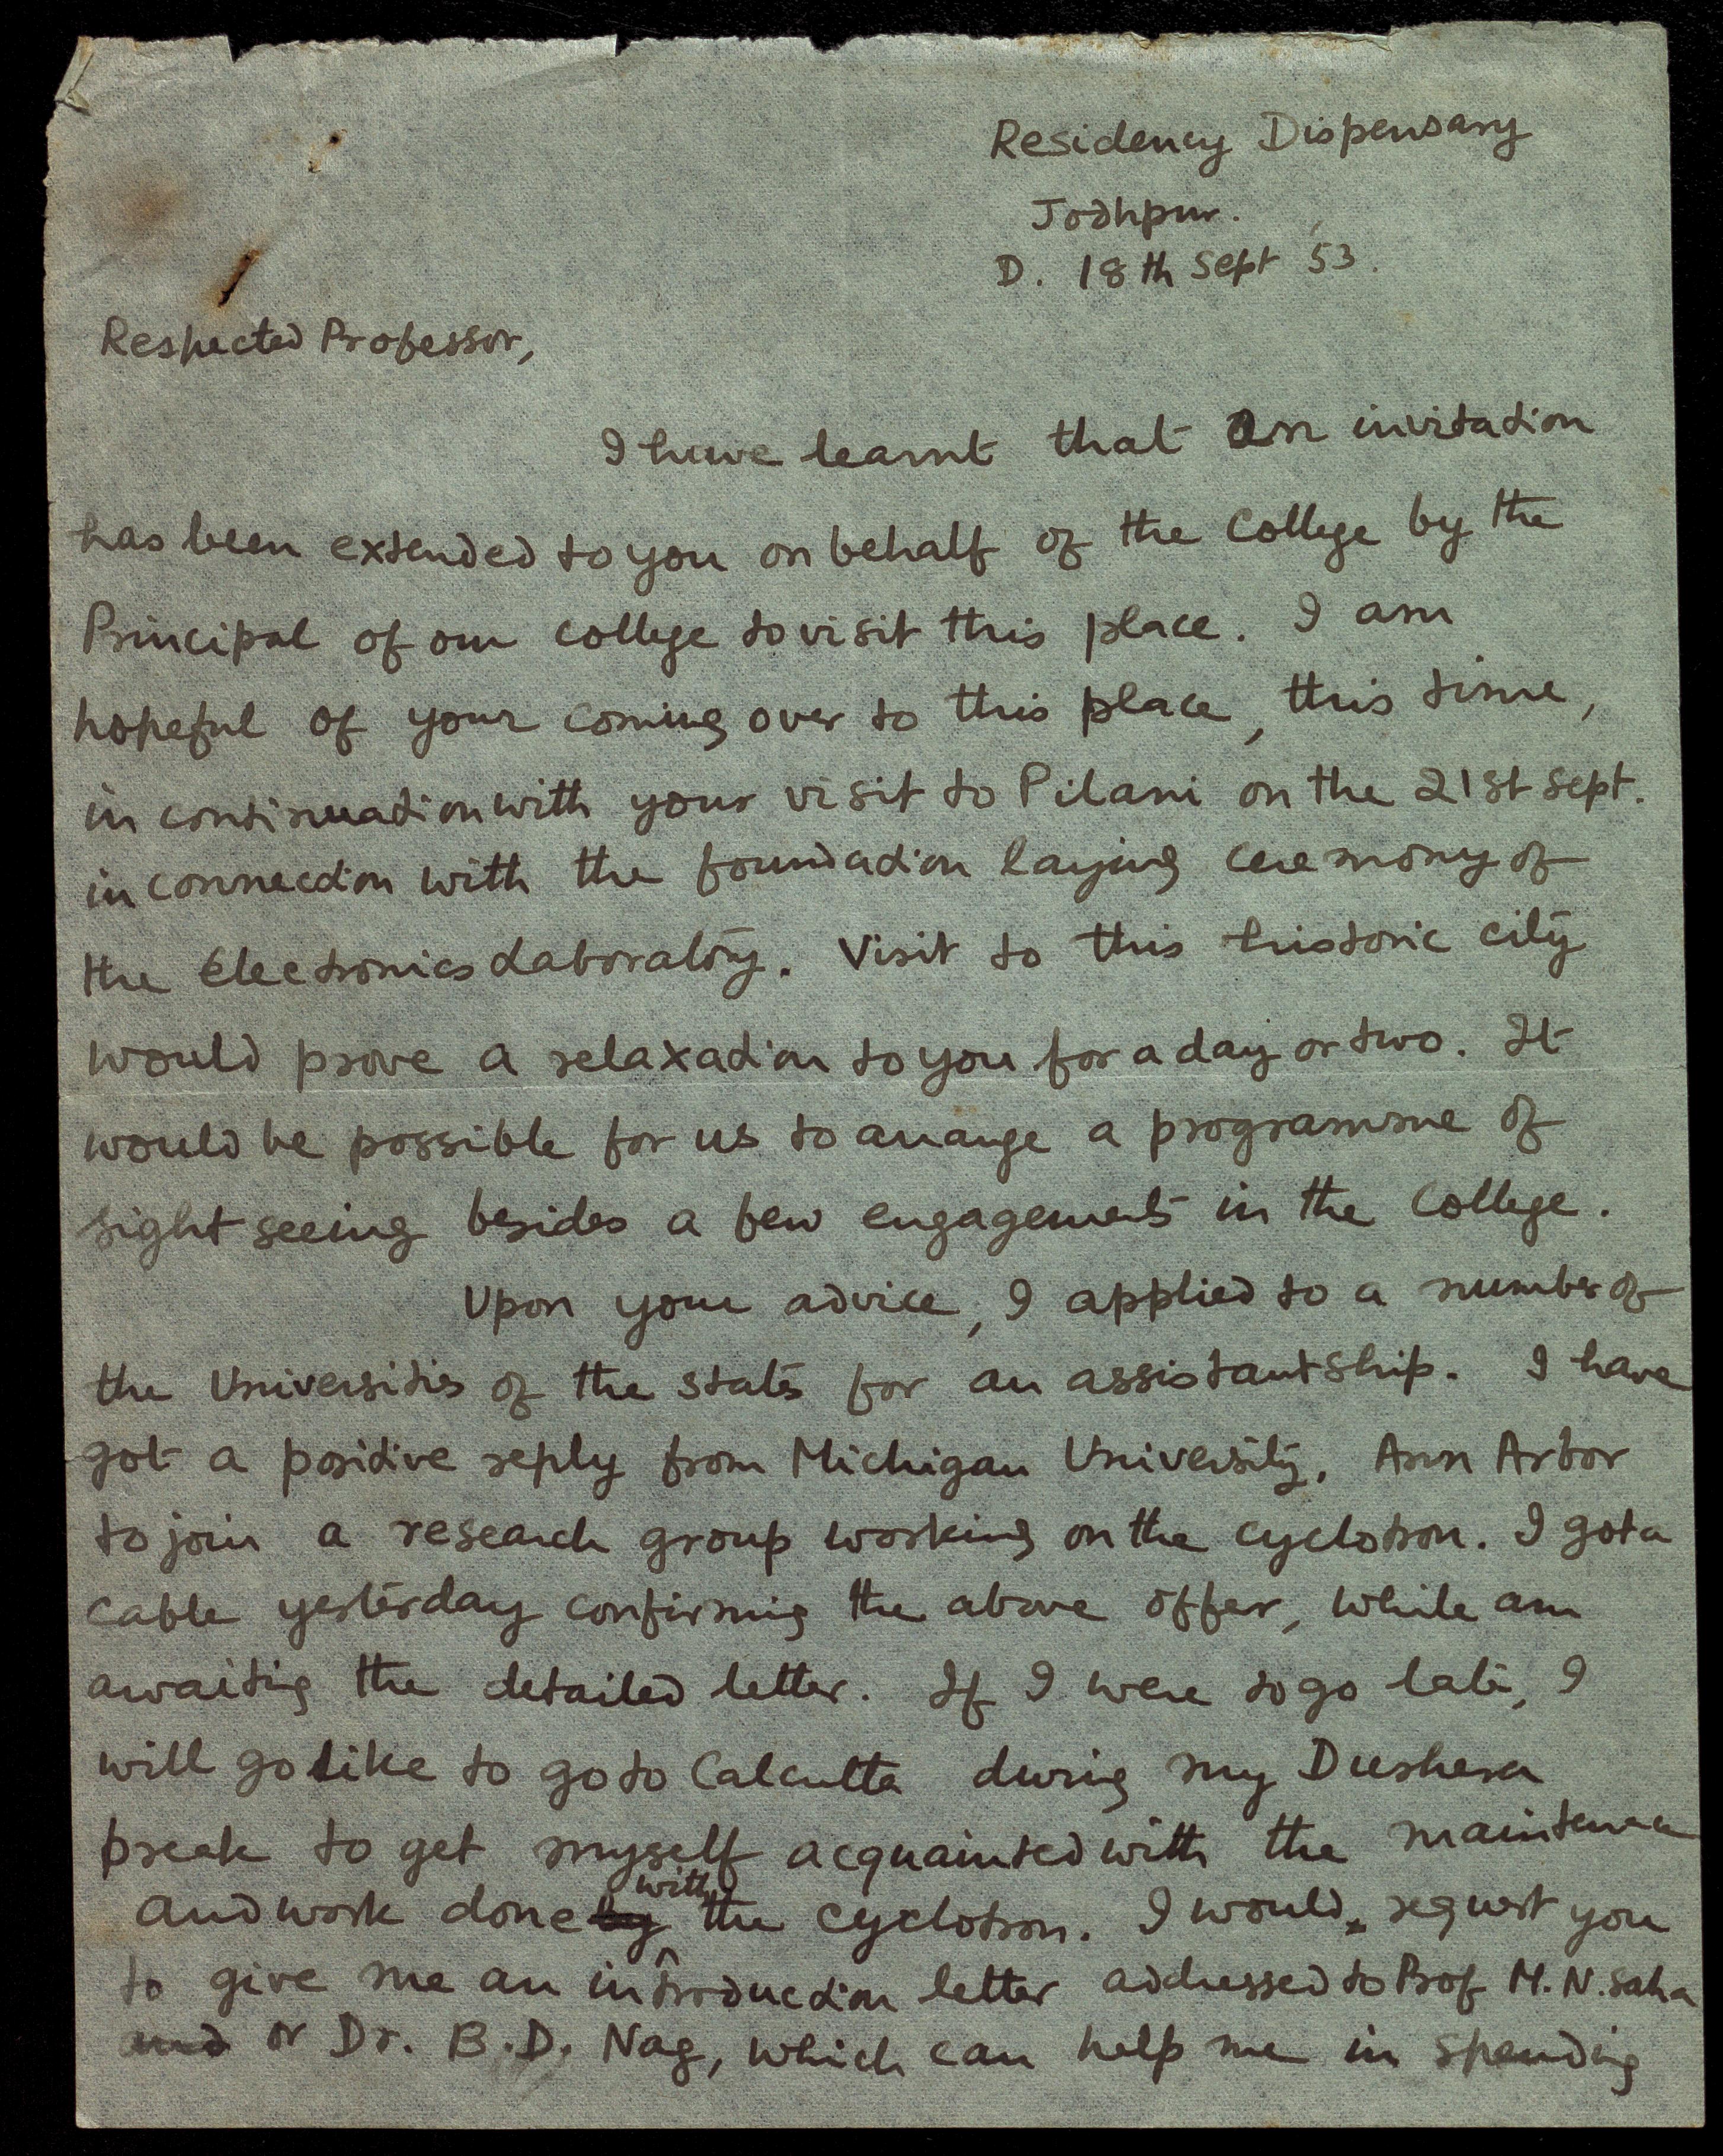 Residency Dispensary
Jodhpur.
D. 18th Sept 53.
Respected Professor,
I have learnt that an invitation
has been extended to you on behalf of the College by the
Principal of our college to visit this place. I am
hopeful of your coming over to this place, this time,
in continuation with your visit to Pilani on the 21st Sept.
in connection with the foundation laying ceremony of
the Electronics Laboratory. Visit to this historic city
would prove a relaxation to you for a day or two. It
would be possible for us to arrange a programme of
sight seeing besides a few engagements in the College.
Upon your advice, I applied to a number of
the Universities of the states for an assistantship. I have
got a positive reply from Michigan University, Ann Arbor
to join a research group working on the cyclotron. I got a
cable yesterday confirming the above offer, while am
awaiting the detailed letter. If I were to go late, I
will go like to go to Calcutta during my Dushera
break to get myself acquainted with the maintenance
and work done by with the cyclotron. I would request you
to give me an introduction letter addressed to Prof M. N. Saha
and or Dr. B.D. Nag, which can help me in spending